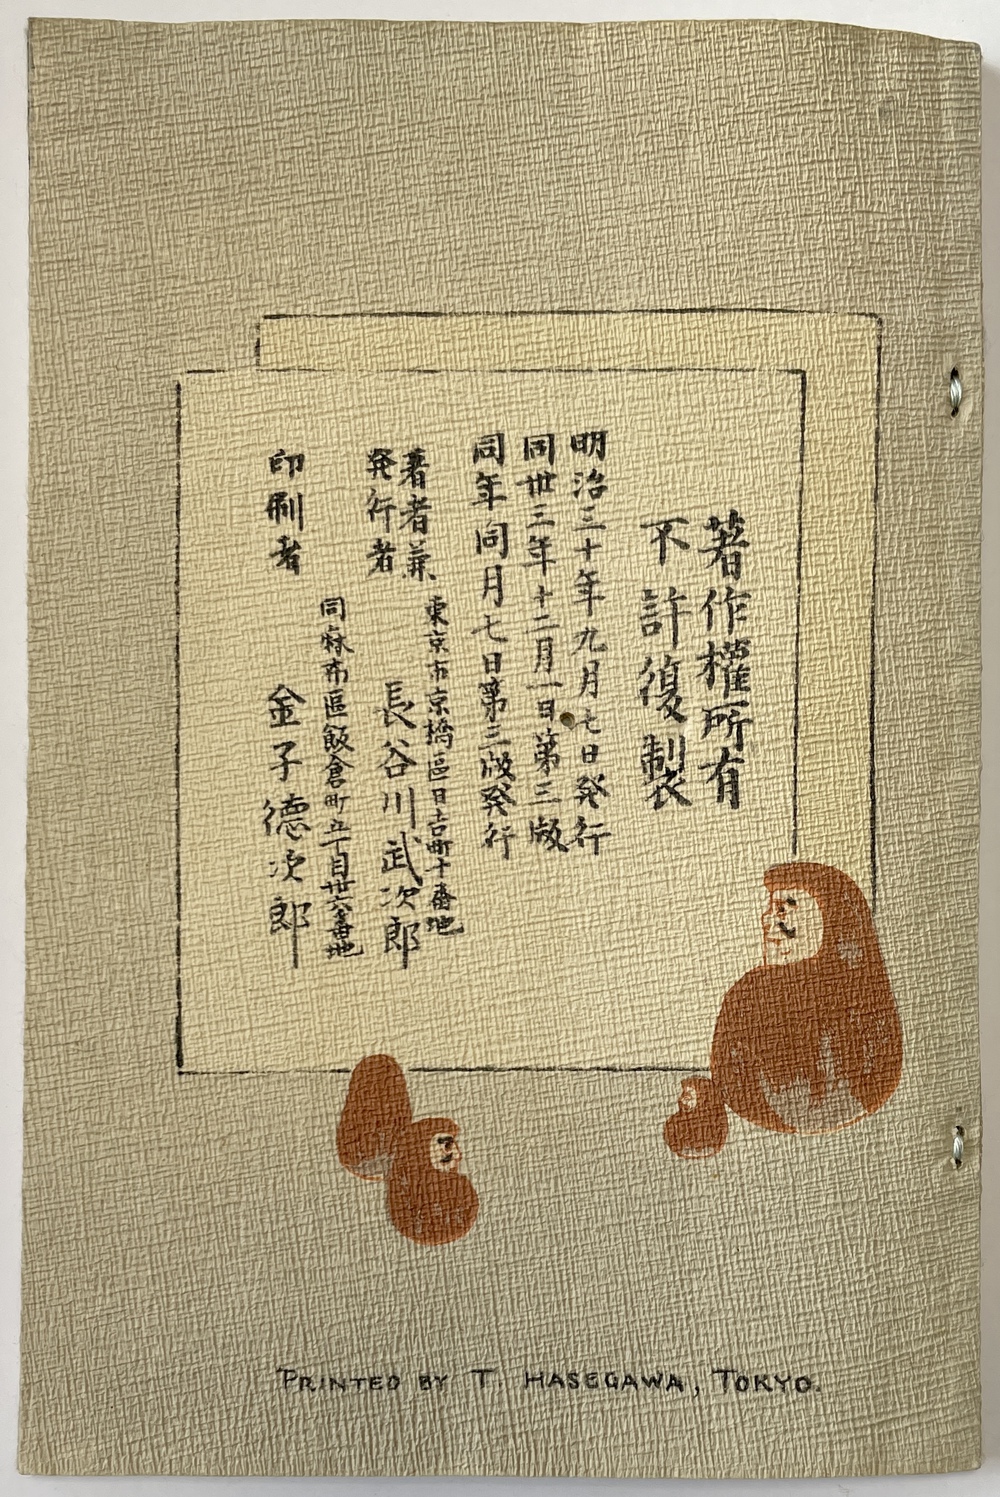 著作權所有
不許復製
明治三十年九月七日発行
同卅三年十二月一日第三版
同年同月七日第三版発行
著者兼
発行者
東京市京橋區日吉町十番地
長谷川武次郎
同麻布區飯倉町五丁目卅六番地
印刷者
金子德次郎
PRINTED BY T. HASEGAWA, TOKYO.